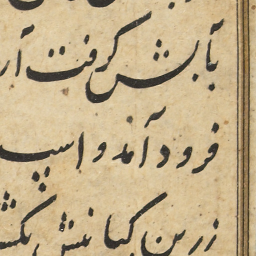 بآبش گرفت آر
فرود آمد و اسپ
زرین کیانیش بکش